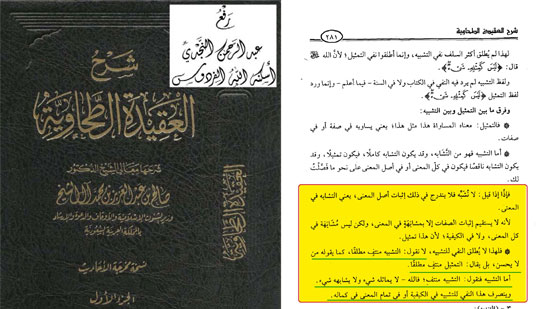 رفع
عبد الرحمن النجدي
أسكنه الله الفردوس
شرح
العقيدة الطحاوية
شرحها معالي الشيخ الدكتور
صالح بن عبد العزيز بن محمد آل الشيخ
وزير الشئون الإسلامية والأوقاف والدعوة والإرشاد
بالمملكة العربية السعودية
نسخة مخرجة الأحاديث
الجزء الأول
العقيدة الطحاوية
شرح العقيدة الطحاوية
٢٨١
لهذا لم يُطلق أكثر السلف نفي التشبيه، وإنما أطلقوا نفي التمثيل؛ لأن الله
قال: ﴿لَيْسَ كَمِثْلِهِ شَيْءٌ﴾.
ولفظ التشبيه لم يرد فيه النفي في الكتاب ولا في السنة - فيما أعلم - وإنما ورد
لفظ التمثيل ﴿لَيْسَ كَمِثْلِهِ شَيْءٌ﴾.
وفرق ما بين التمثيل وبين التشبيه:
* فالتمثيل: معناه المساواة هذا مثل هذا؛ يعني يساويه في صفة أو في
صفات.
* أما التشبيه فهو من التَّشابه، وقد يكون التشابه كاملًا، فيكون تمثيلًا، وقد
يكون التشابه ناقصًا فيكون في أصل المعنى، أو في كل المعنى على نحو ما فَصَّلْتُ
لكم.
فإذًا إذا قيل: لا نُشَبِّه فلا يندرج في ذلك إثبات أصل المعنى، يعني التشابه في
المعنى.
لأنه لا يستقيم إثبات الصفات إلا بمشابهةٍ في المعنى، ولكن ليس مُشَابَهَة في
كل المعنى، ولا في الكيفية؛ لأن هذا تمثيل.
* فلهذا لا يُطلق النفي للتشبيه، لا نقول: التشبيه منتفٍ مطلقًا، كما يقوله من
لا يحسن، بل يقال: التمثيل منتفٍ مطلقًا.
أما التشبيه فنقول: التشبيه منتفٍ؛ فالله - لا يماثله شيء ولا يشابهه شيء.
وينصرف هذا النفي للتشبيه في الكيفية أو في تمام المعنى في كماله.